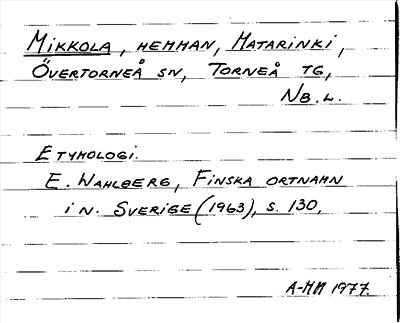 MIKKOLA, HEMMAN, MATARINKI,
ÖVERTORNEÅ SN, TORNEÅ TG,
NB.L.
ETYMOLOGI.
E. WAHLBERG, FINSKA ORTNAMN
I N. SVERIGE (1963), S. 130,
A-MM 1977.